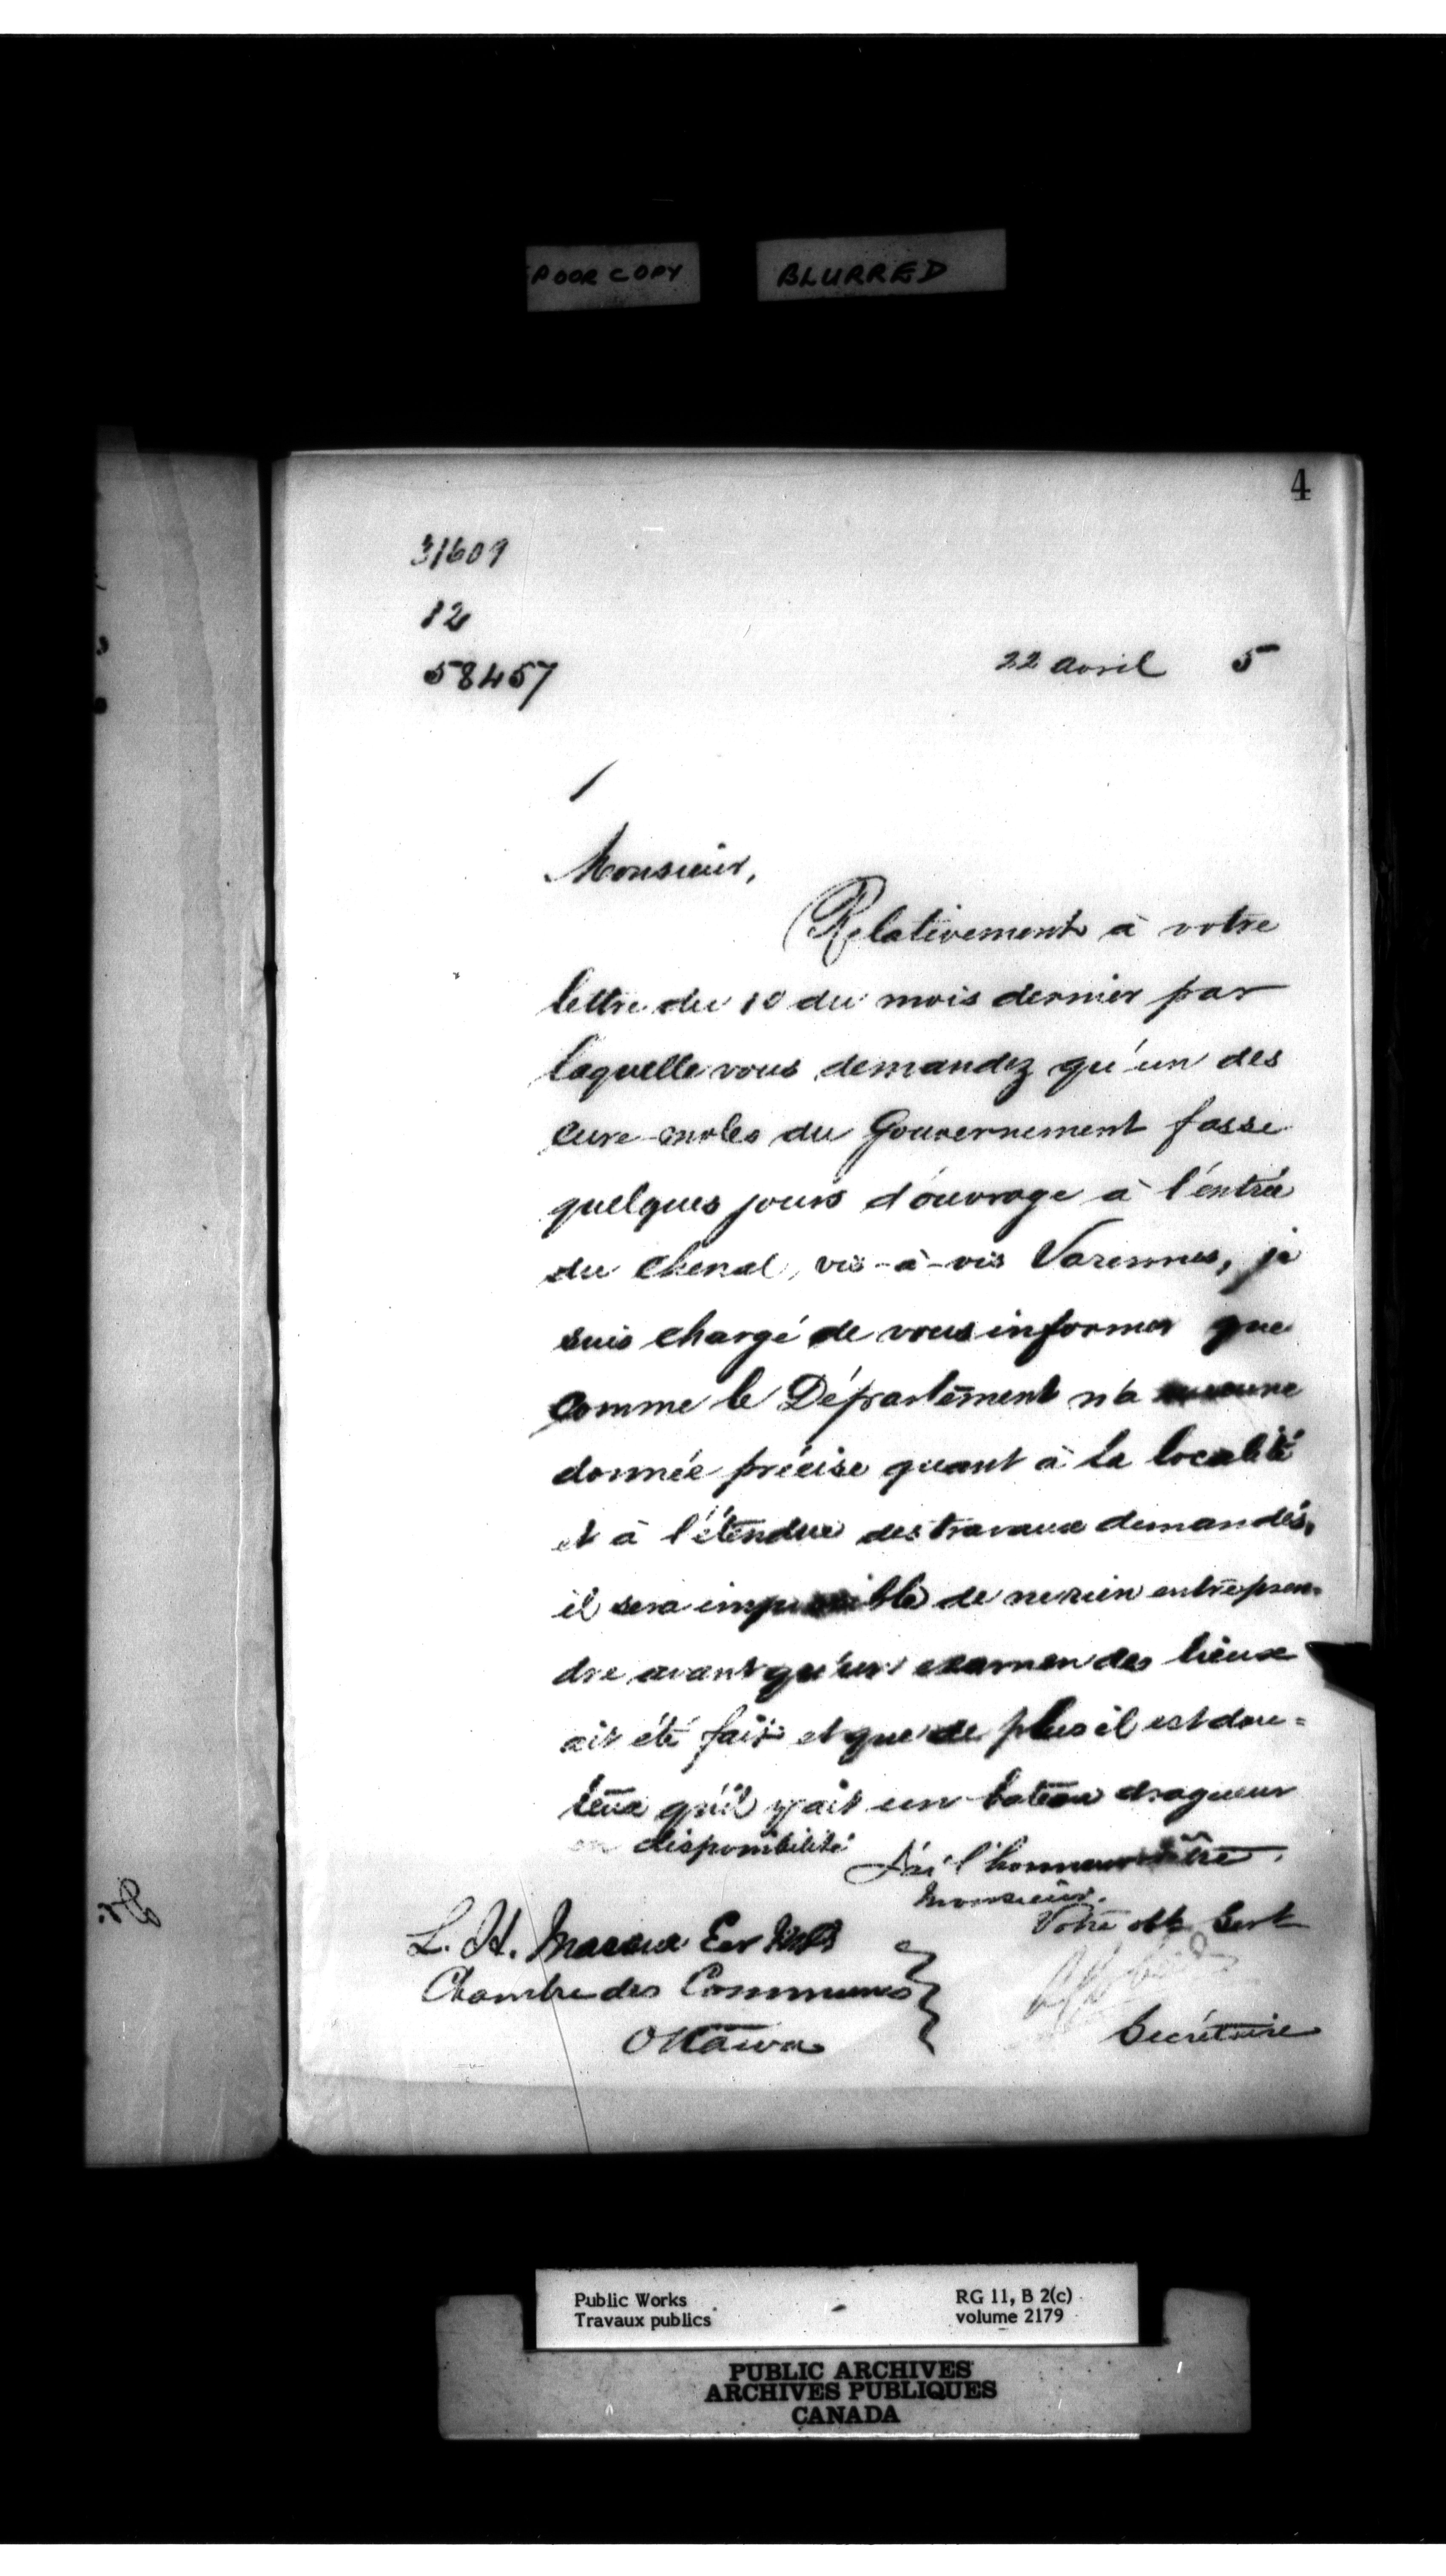 POOR COPY
BLURRED
4
31609
12
58457
22 avril 5
Monsieur,
Relativement à votre
lettre du 10 du mois dernier par
laquelle vous demandez qu'un des
cure-moles du Gouvernement fasse
quelques jours d'ouvrage à l'entrée
du chenal, vis-à-vis Varennes, je
suis chargé de vous informer que
comme le Département n'a aucune
donnée précise quant à la localité
et à l'étendue des travaux demandés,
il sera impossible de ne rien entrepren-
dre avant qu'un examen des lieux
ait été fait et que de plus il est dou=
teux qu'il y ait un bateau dragueur
en disponibilité
J'ai l'honneur d'être.
Monsieur.
Votre obt Sert
L. H. Massue Ecr
Chambre des Communes
Ottawa
Secrétaire
Public Works
Travaux publics
RG 11, B 2(c)
volume 2179
PUBLIC ARCHIVES
ARCHIVES PUBLIQUES
CANADA